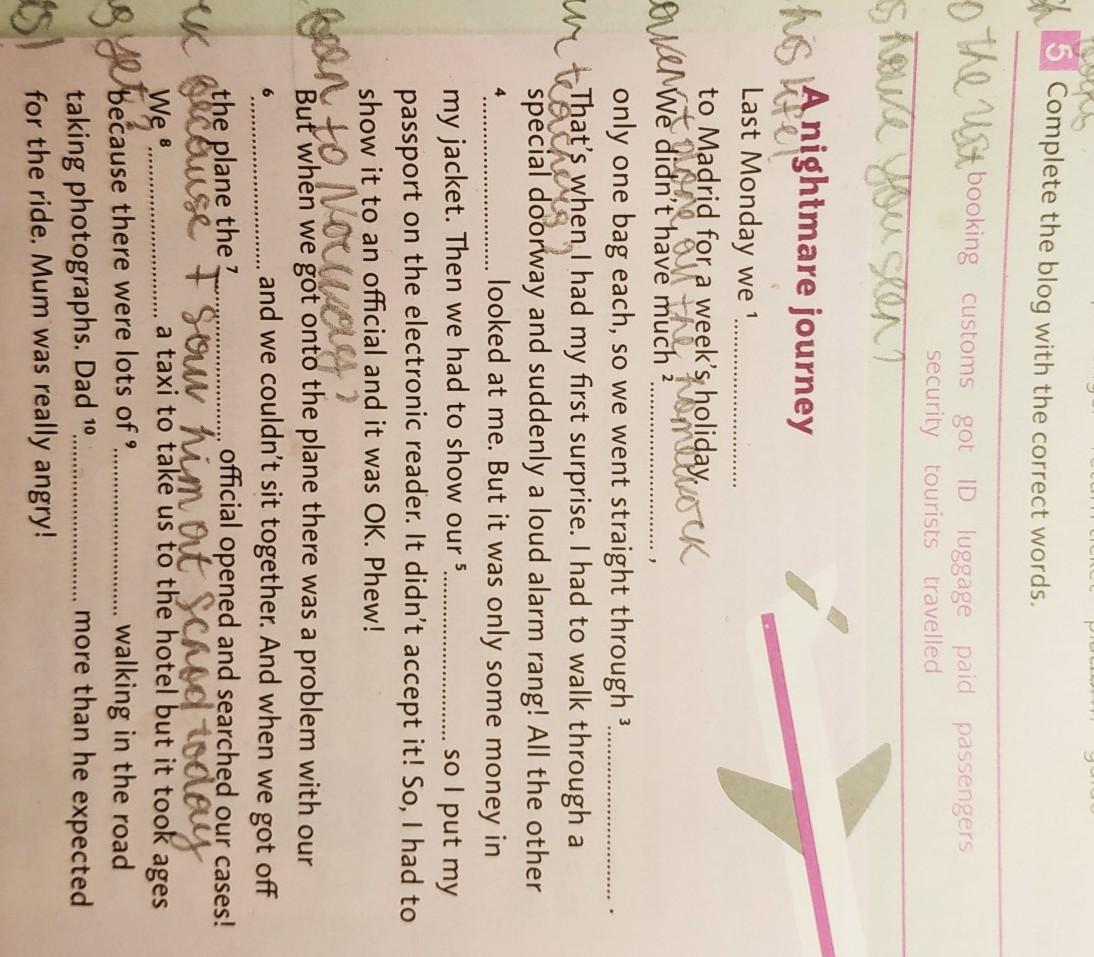 5 Complete the blog with the correct words.
booking customs got ID luggage paid passengers
security tourists travelled
have you seen?
A nightmare journey
Last Monday we 1 ..................
to Madrid for a week's holiday.
We didn't have much 2 ..................,
only one bag each, so we went straight through 3 .................. .
That's when I had my first surprise. I had to walk through a
special doorway and suddenly a loud alarm rang! All the other
4 .................. looked at me. But it was only some money in
my jacket. Then we had to show our 5 .................. so I put my
passport on the electronic reader. It didn't accept it! So, I had to
show it to an official and it was OK. Phew!
to Norway?
But when we got onto the plane there was a problem with our
6 .................. and we couldn't sit together. And when we got off
the plane the 7 .................. official opened and searched our cases!
because I saw him at school today
We 8 .................. a taxi to take us to the hotel but it took ages
because there were lots of 9 .................. walking in the road
taking photographs. Dad 10 .................. more than he expected
for the ride. Mum was really angry!